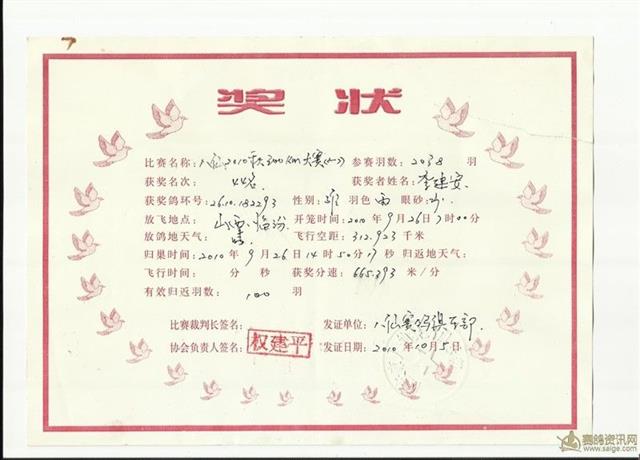 奖状
比赛名称：八仙2010秋300Km大赛 参赛羽数：2038羽
获奖名次：44名 获奖者姓名：李建安
获奖鸽环号：2610.182293 性别：雄 羽色 雨 眼砂：沙
放飞地点：山西.临汾 开笼时间：2010年9月26日7时00分
放鸽地天气： 飞行空距：312.923千米
归巢时间：2010年9月26日14时50分17秒 归返地天气：
飞行时间： 时 分 秒 获奖分速：665.393米／分
有效归返羽数：100羽
比赛裁判长签名： 发证单位：八仙赛鸽俱乐部
协会负责人签名：权建平 发证日期：2010年10月5日
赛鸽资讯网
www.saige.com